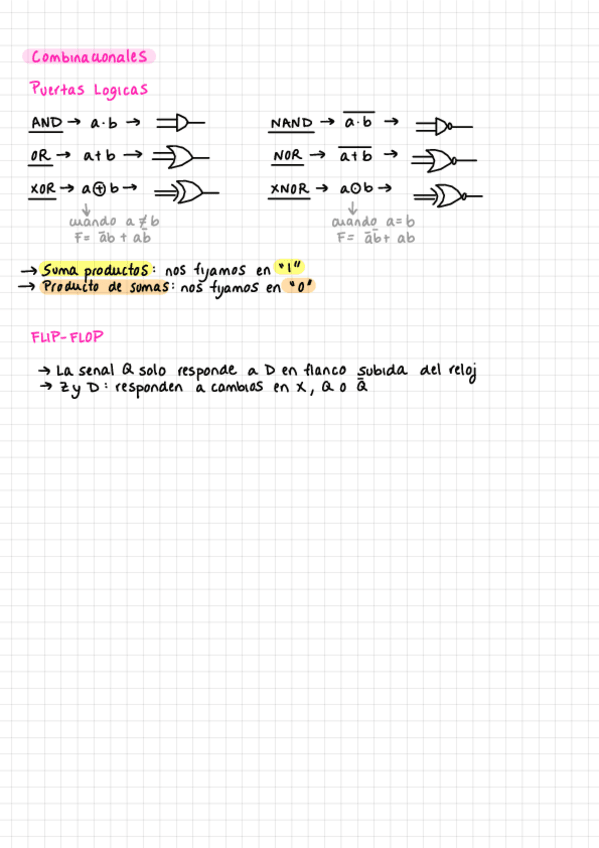 Combinacionales
Puertas Logicas
AND → a·b →
NAND → \overline{a·b} →
OR → a+b →
NOR → \overline{a+b} →
XOR → a⊕b →
XNOR → a⊙b →
↓
cuando a ≠ b
F = āb + ab̄
↓
cuando a=b
F = āb̄ + ab
→ Suma productos: nos fijamos en "1"
→ Producto de sumas: nos fijamos en "0"
FLIP-FLOP
→ La senal Q solo responde a D en flanco subida del reloj
→ Z y D: responden a cambios en X, Q o Q̄